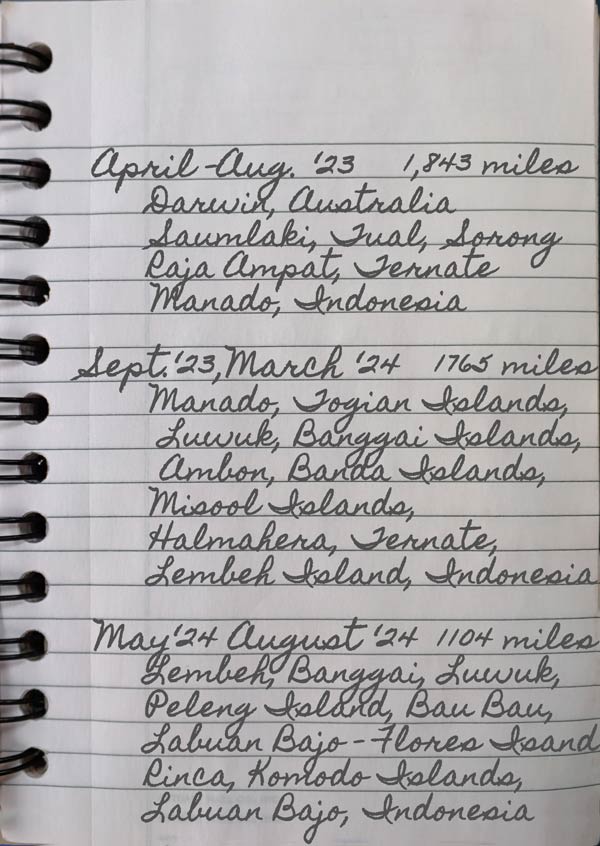 April-Aug. '23 1,843 miles
Darwin, Australia
Saumlaki, Tual, Sorong
Raja Ampat, Ternate
Manado, Indonesia
Sept. '23, March '24 1765 miles
Manado, Togian Islands,
Luwuk, Banggai Islands,
Ambon, Banda Islands,
Misool Islands,
Halmahera, Ternate,
Lembeh Island, Indonesia
May '24 August '24 1104 miles
Lembeh, Banggai, Luwuk,
Peleng Island, Bau Bau,
Labuan Bajo - Flores Isand
Rinca, Komodo Islands,
Labuan Bajo, Indonesia